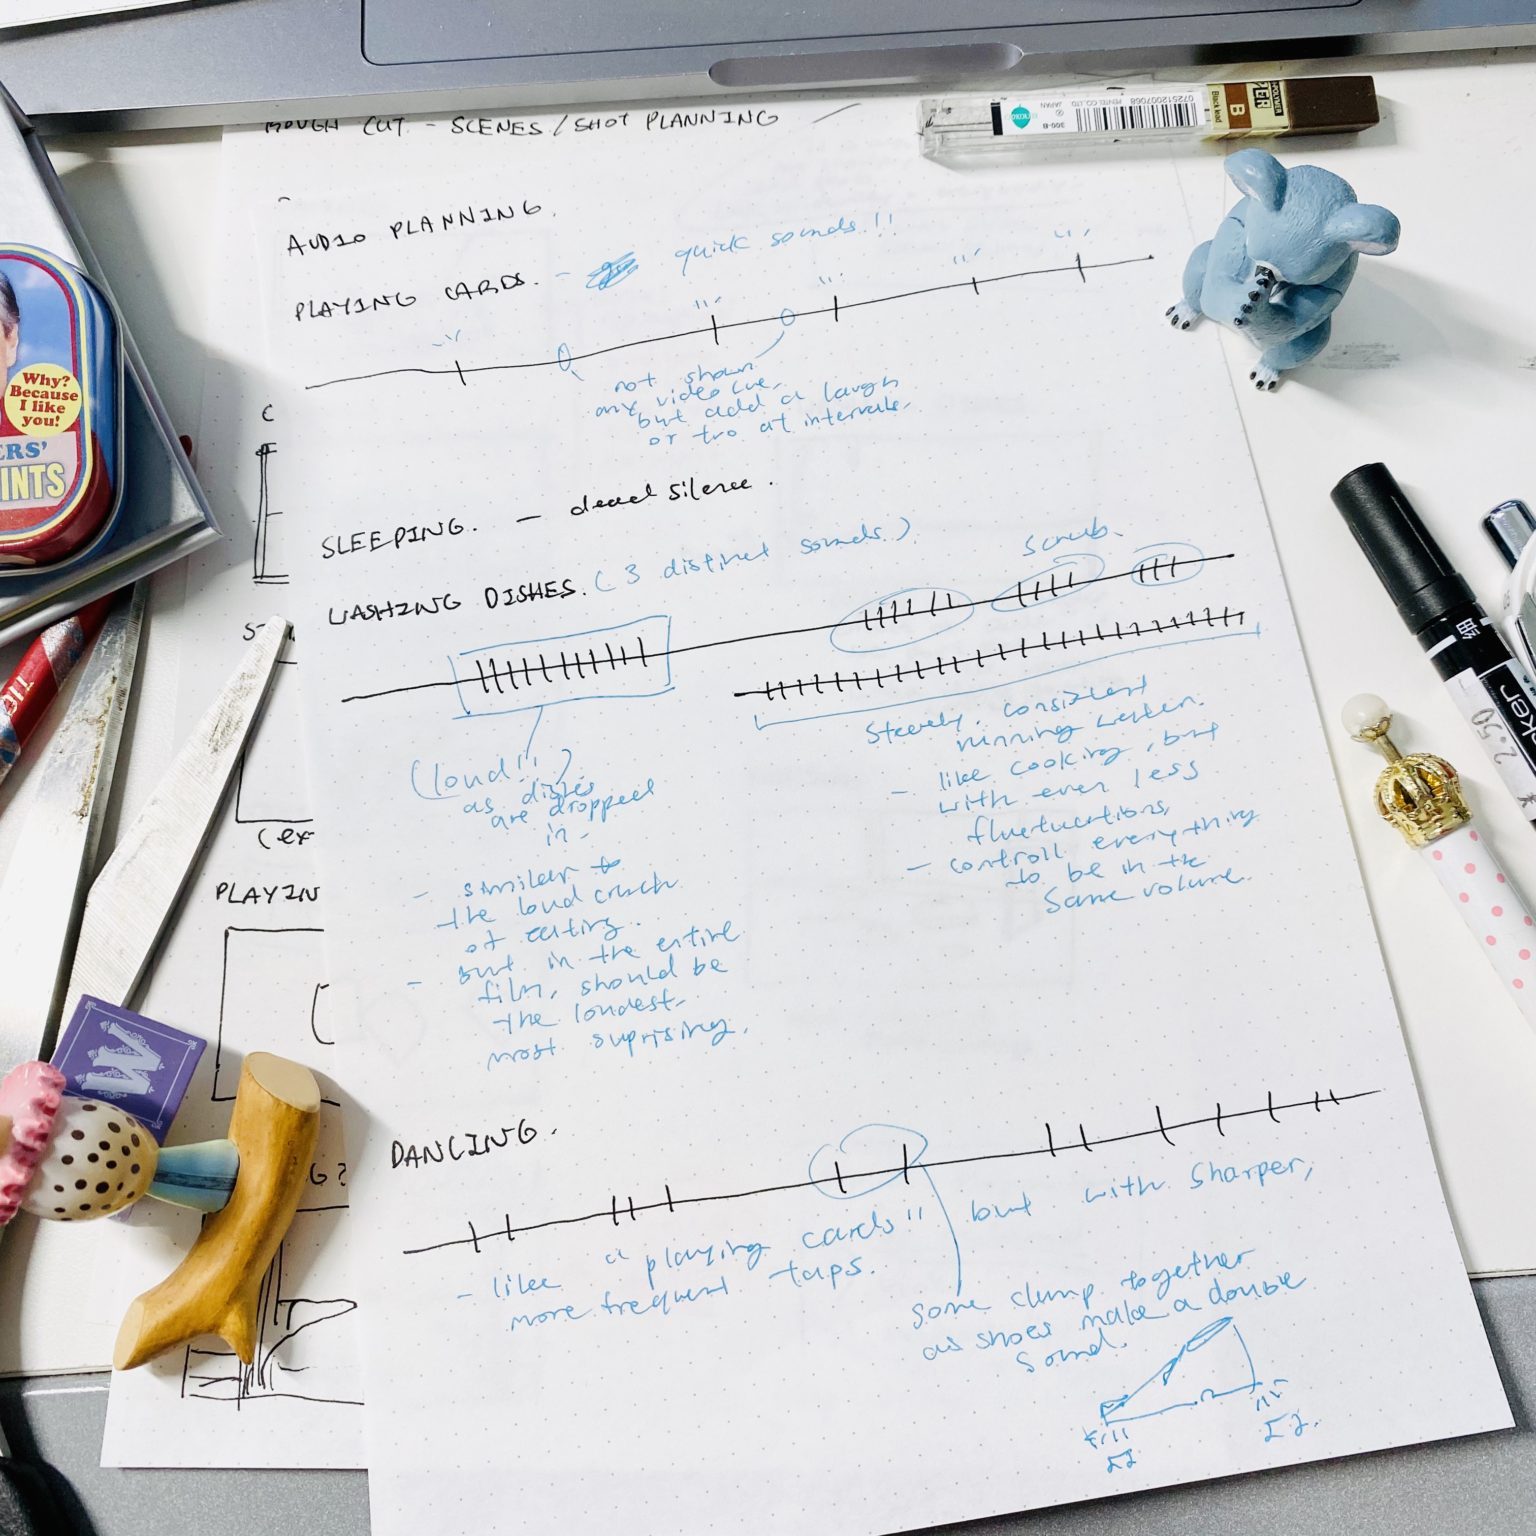 ROUGH CUT - SCENES/SHOT PLANNING
AUDIO PLANNING.
PLAYING CARDS. - quick sounds!!
not shown
any video cue,
but add a laugh
or two at intervals.
SLEEPING. - dead silence.
WASHING DISHES. (3 distinct sounds.)
scrub.
(loud!!)
as dishes
are dropped
in-
- similar to
the loud crunch
of eating.
- But in the entire
film, should be
the loudest,
most suprising.
Steady. consistent
running water.
- like cooking, but
with even less
fluctuations,
- controll everything
to be in the
same volume.
DANCING.
- like "playing cards" but with sharper,
more frequent taps.
some clump together
as shoes make a double
sound.
C
(ex
PLAYIN
G?
Why?
Because
I like
you!
ERS'
INTS
M
072512007068
PENTEL CO., LTD.
JAPAN
300-B
B
细
2.50